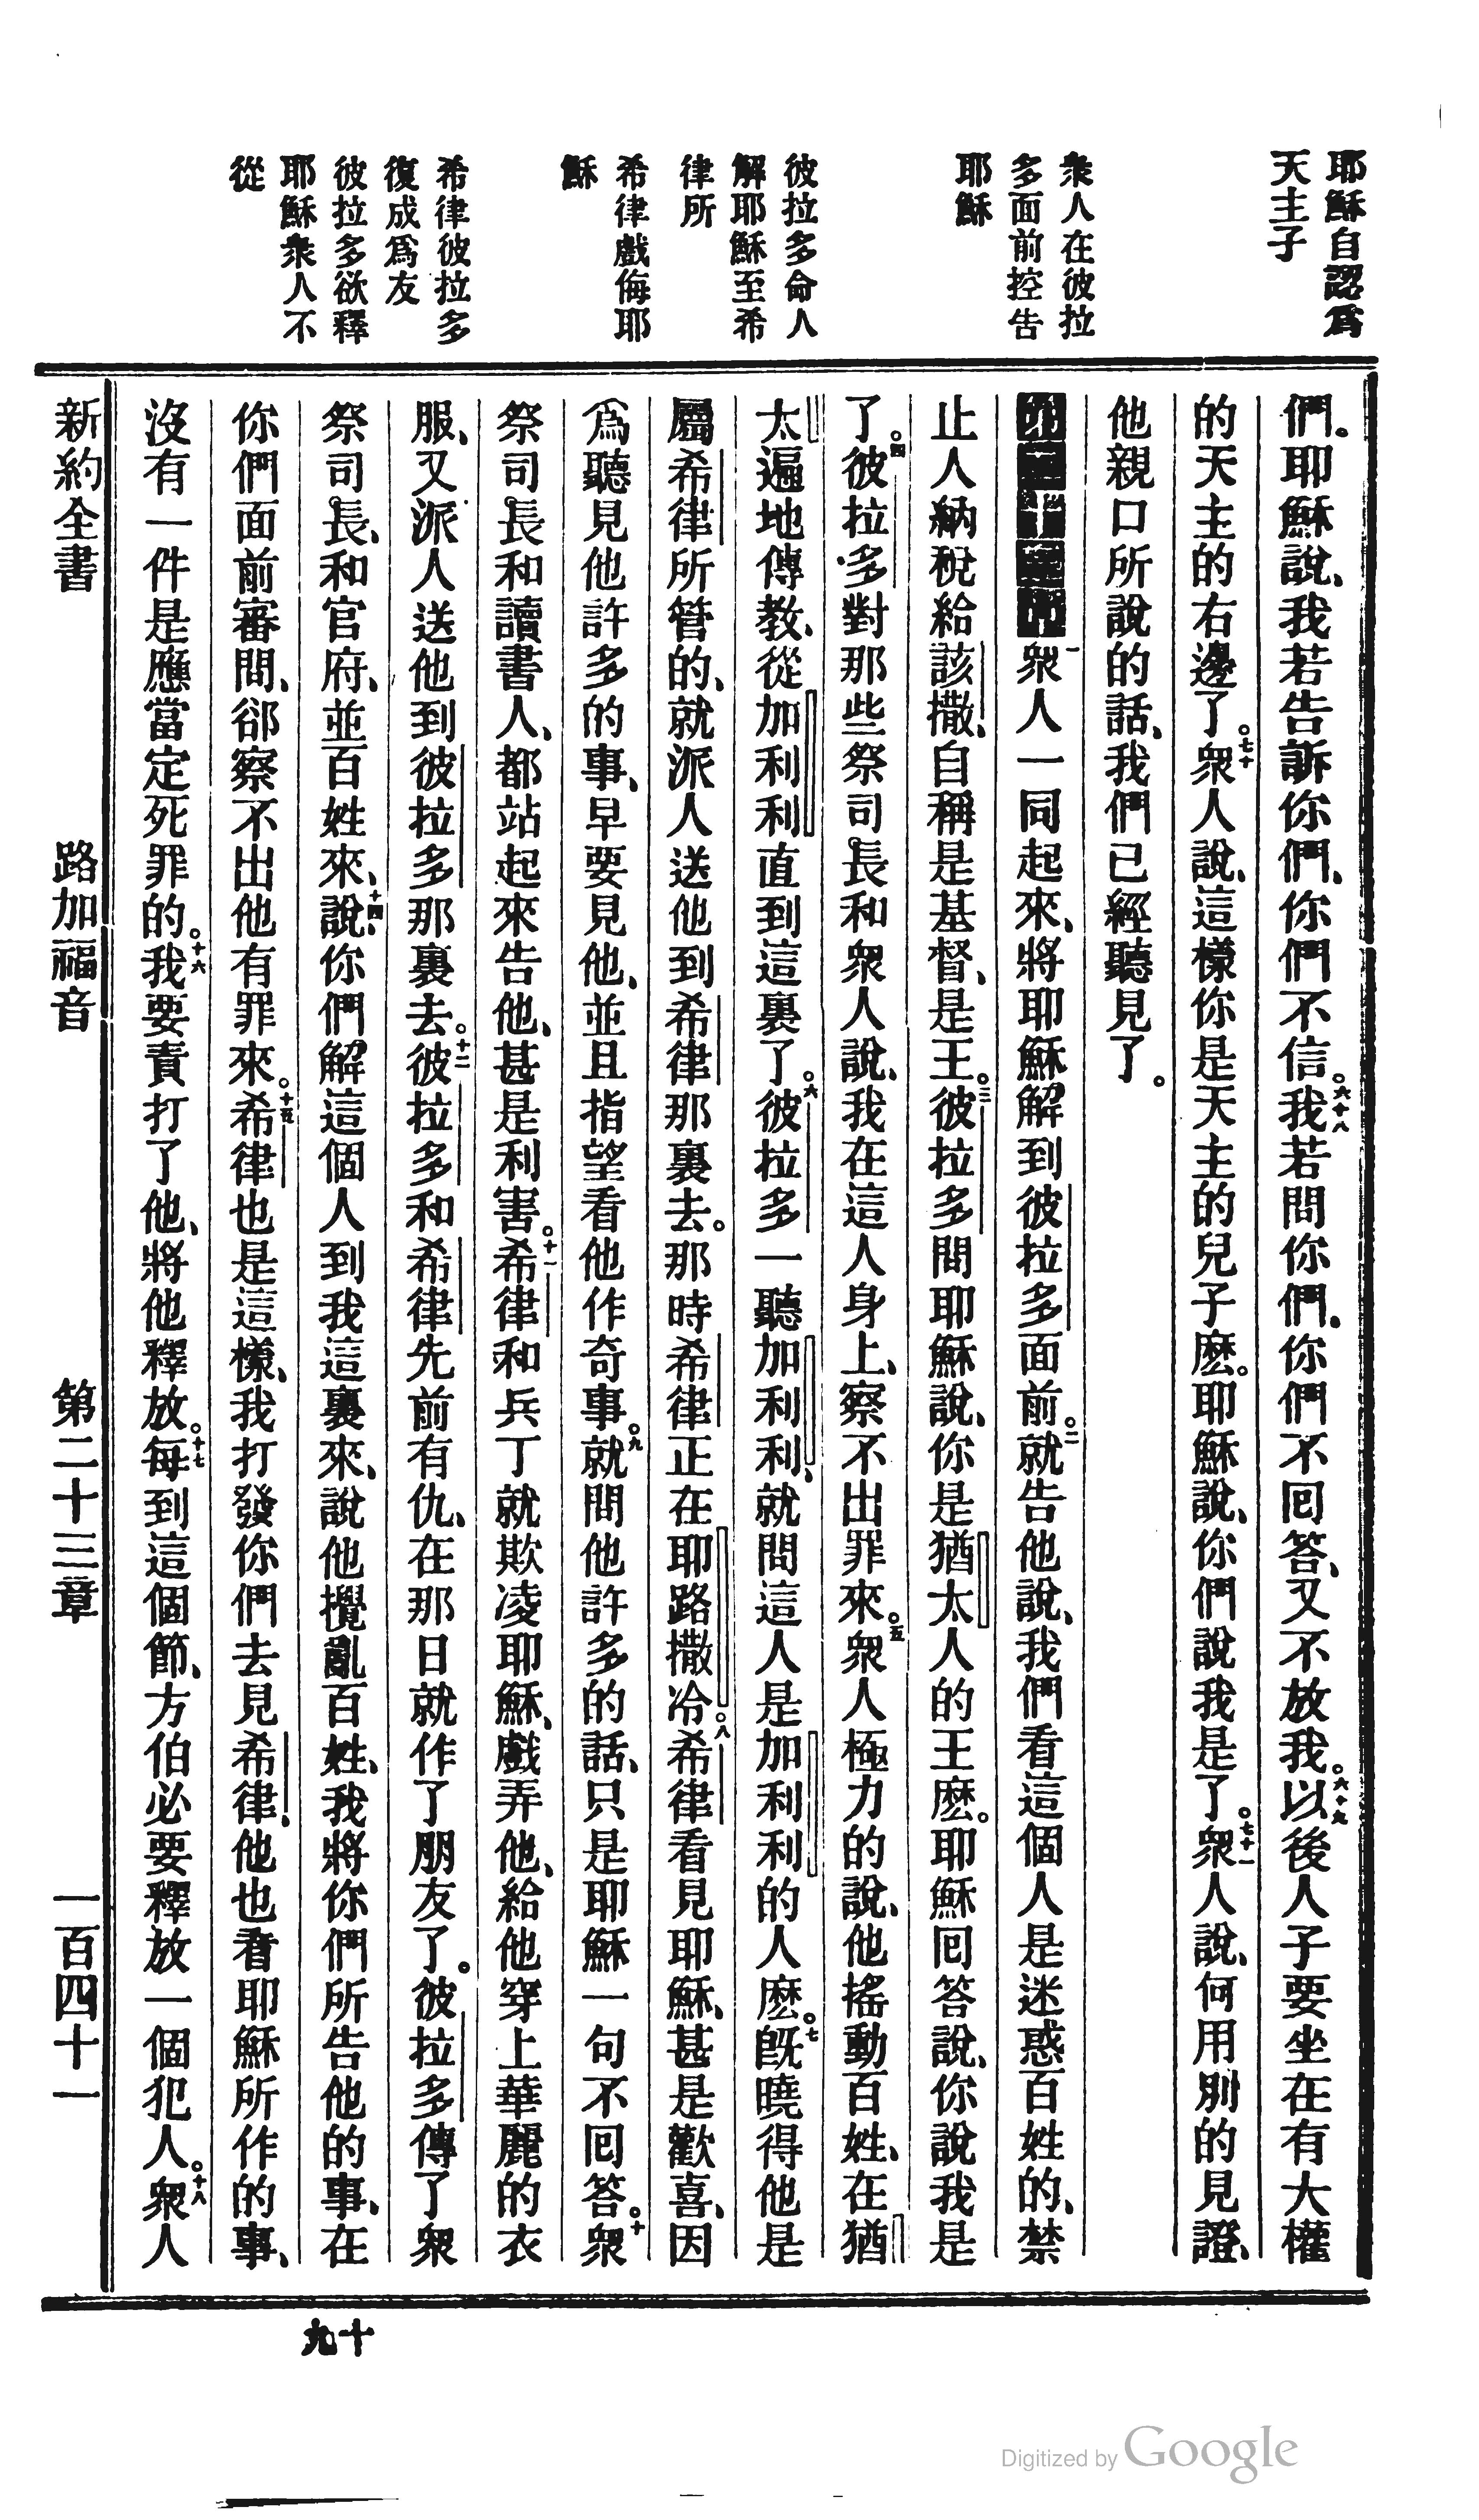 耶穌自認爲
天主子
衆人在彼拉
多面前控告
耶穌
彼拉多命人
解耶穌至希
律所
希律戲侮耶
穌
希律彼拉多
復成爲友
彼拉多欲釋
耶穌衆人不
從
們。耶穌說、我若告訴你們、你們不信。六十八我若問你們、你們不回答、又不放我。六十九以後人子要坐在有大權
的天主的右邊了。七十衆人說、這樣你是天主的兒子麽。耶穌說、你們說我是了。七十一衆人說、何用別的見證、
他親口所說的話、我們已經聽見了。
第二十三章一衆人一同起來、將耶穌解到彼拉多面前。二就告他說、我們看這個人是迷惑百姓的、禁
止人納稅給該撒、自稱是基督、是王。三彼拉多問耶穌說、你是猶太人的王麽。耶穌回答說、你說我是
了。四彼拉多對那些祭司長和衆人說、我在這人身上、察不出罪來。五衆人極力的說、他搖動百姓、在猶
太遍地傳教、從加利利直到這裏了。六彼拉多一聽加利利、就問這人是加利利的人麽。七旣曉得他是
屬希律所管的、就派人送他到希律那裏去。那時希律正在耶路撒冷。八希律看見耶穌、甚是歡喜、因
爲聽見他許多的事、早要見他、並且指望看他作奇事。九就問他許多的話、只是耶穌一句不回答。十衆
祭司長和讀書人、都站起來告他、甚是利害。十一希律和兵丁就欺凌耶穌、戲弄他、給他穿上華麗的衣
服、又派人送他到彼拉多那裏去。十二彼拉多和希律先前有仇、在那日就作了朋友了。彼拉多傳了衆
祭司長、和官府、並百姓來、十四說、你們解這個人到我這裏來、說他攪亂百姓、我將你們所告他的事、在
你們面前審問、卻察不出他有罪來。十五希律也是這樣、我打發你們去見希律、他也看耶穌所作的事、
沒有一件是應當定死罪的。十六我要責打了他、將他釋放。十七每到這個節、方伯必要釋放一個犯人。十八衆人
新約全書 路加福音 第二十三章 一百四十一
十九
Digitized by Google